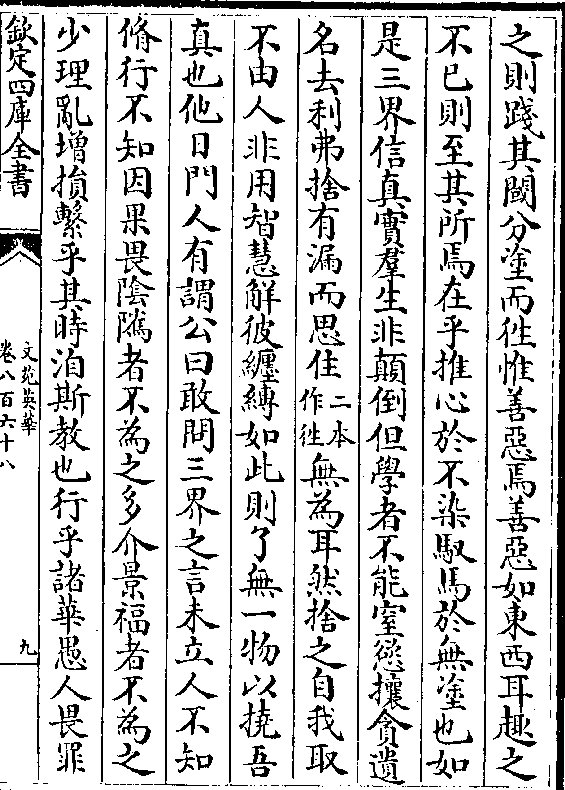 之則踐其閾分塗而徃惟善惡焉善惡如東西耳趣之
不已則至其所焉在乎推心於不染馭馬於無塗也如
是三界信真實羣生非顛倒但學者不能窒慾攘貪遺
名去利弗捨有漏而思住二本作徃無為耳然捨之自我取
不由人非用智慧解彼纒縛如此則了無一物以撓吾
真也他日門人有謂公曰敢問三界之言未立人不知
脩行不知因果畏陰隲者不為之多介景福者不為之
少理亂增損繫乎其時洎斯教也行乎諸華愚人畏罪
欽定四庫全書
文苑英華
卷八百六十八
九